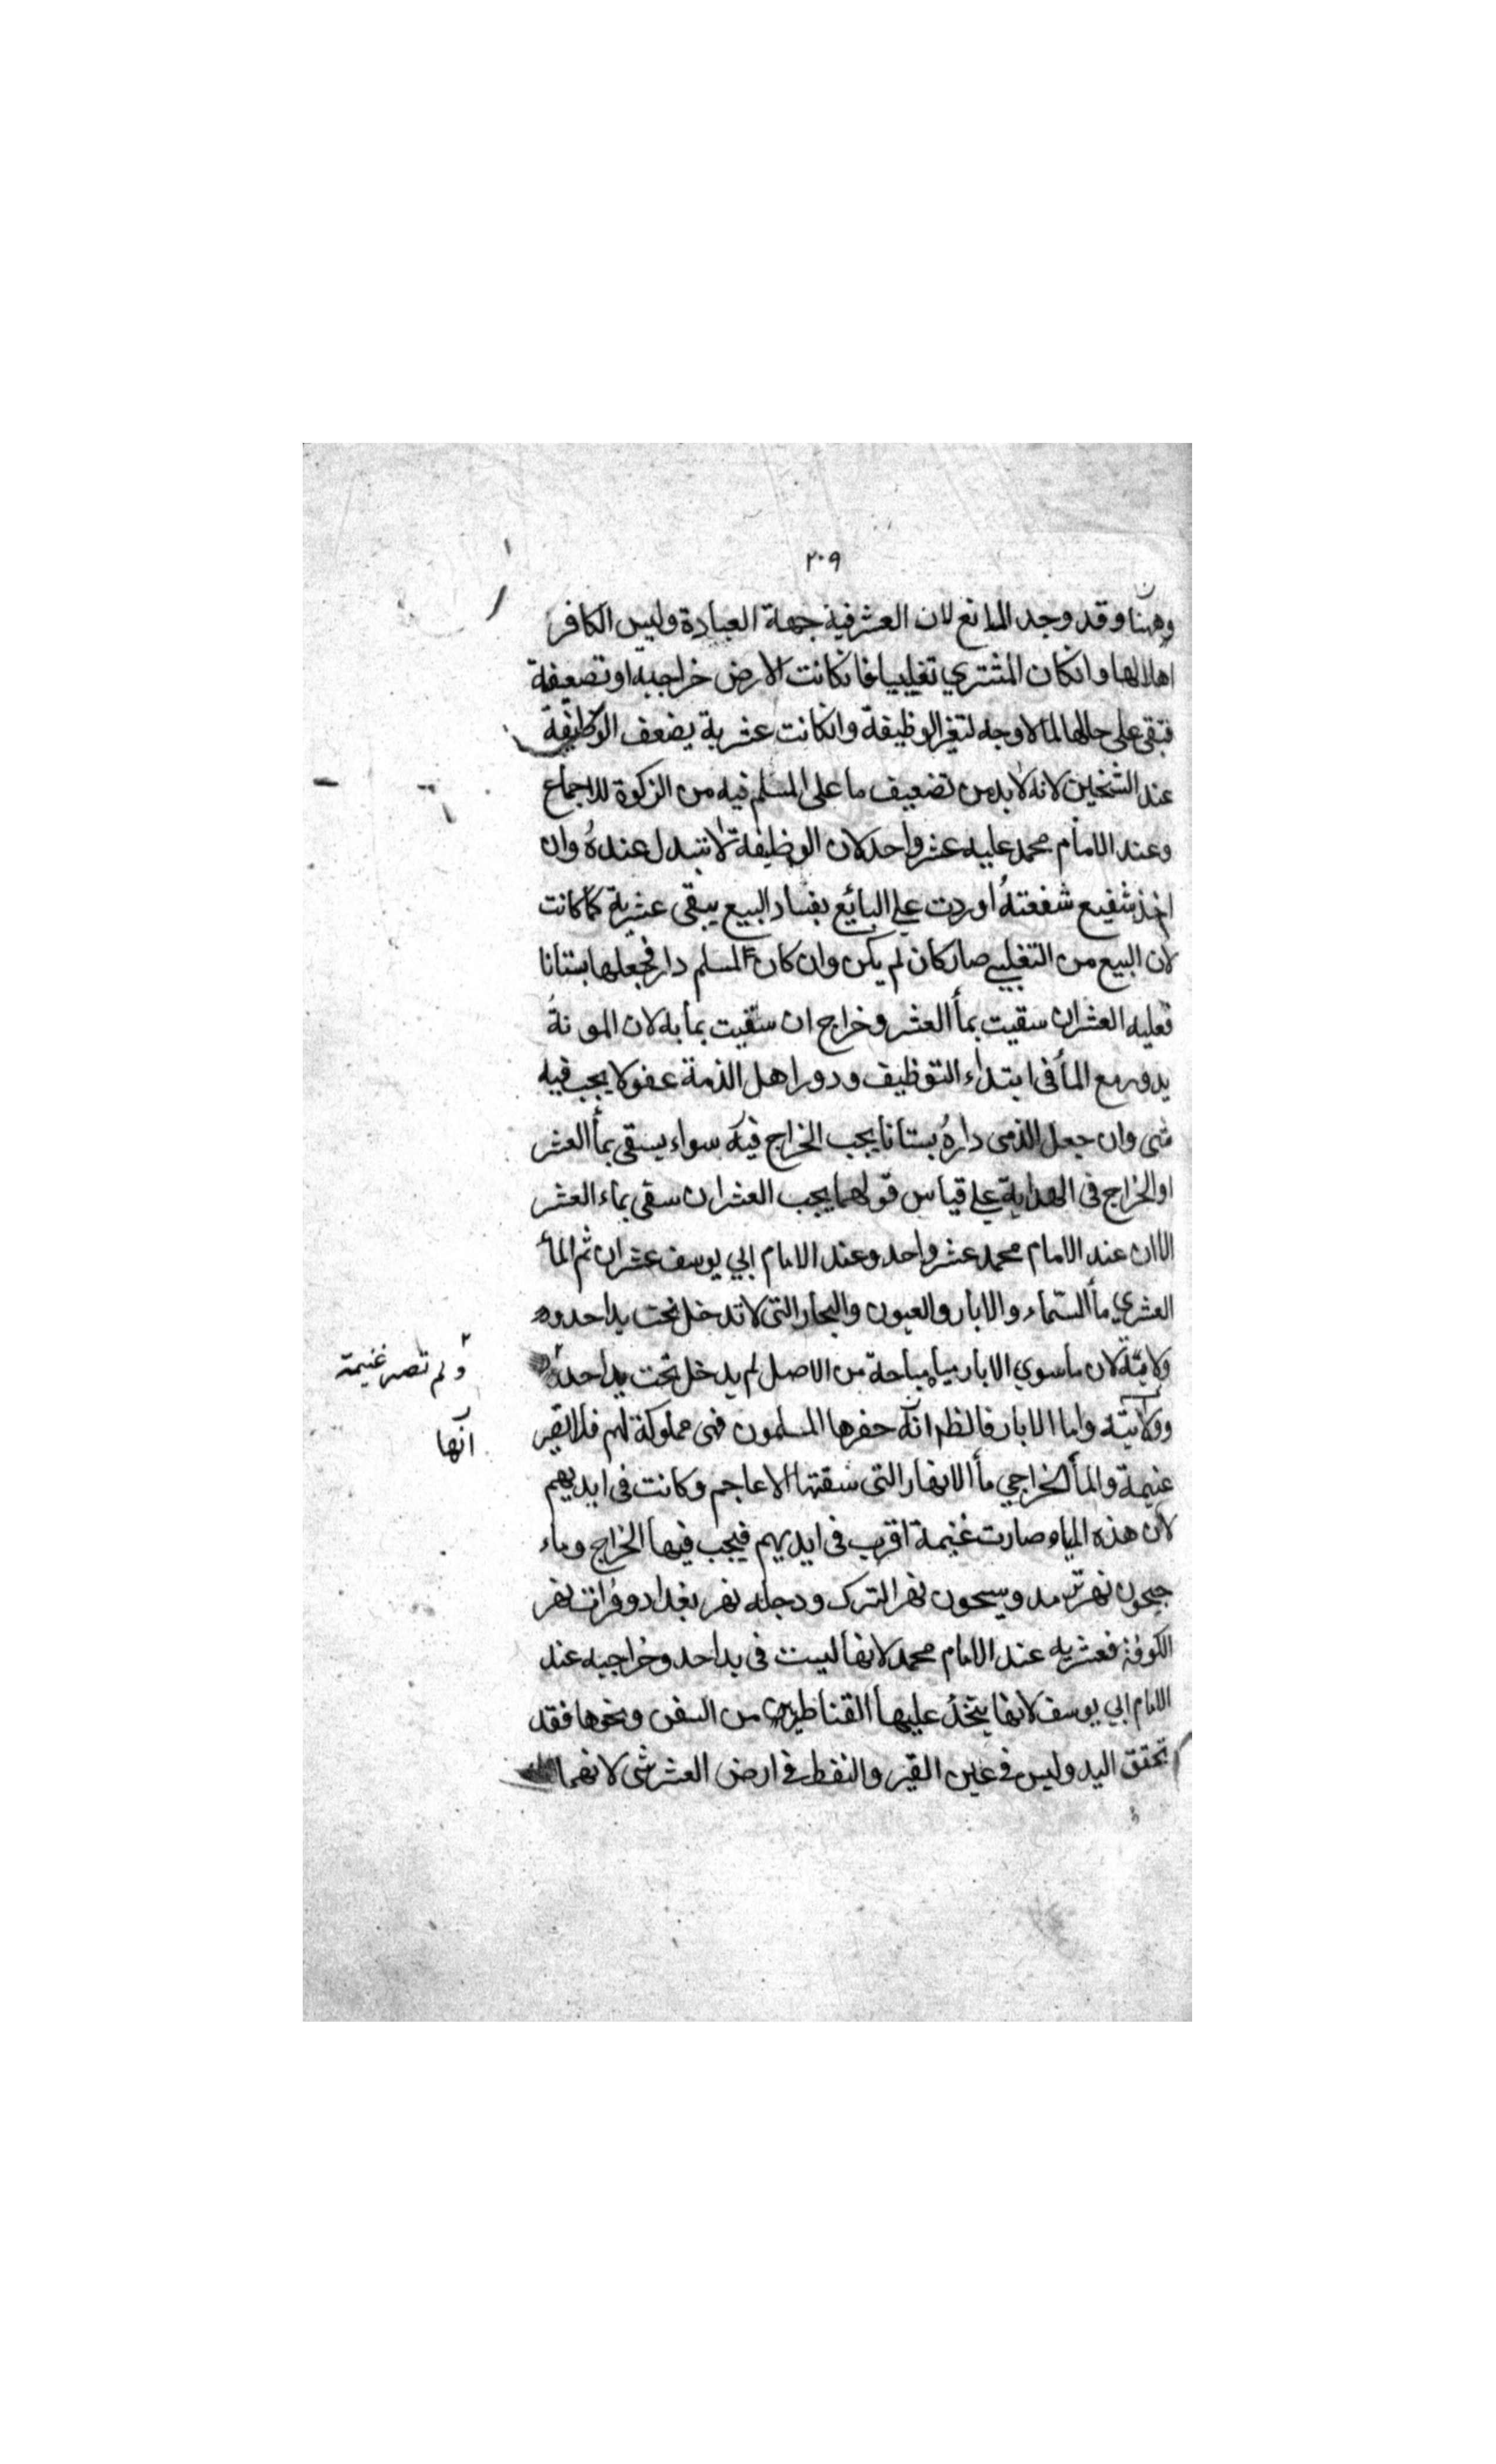 ٢٠٩
وههنا وقد وجد المانع لان العشر فيه جهة العبادة وليس الكافر
اهلا لها وانكان المشتري تغلبيا فانكانت الارض خراجيه اوتضعيفة
فتبقى على حالها لما لاوجه لتغير الوظيفة وانكانت عشرية يضعف الوظيفة
عند الشيخين لانه لابد من تضعيف ما على المسلم فيه من الزكوة للاجماع
وعند الامام محمد عليه عشر واحد لان الوظيفة لاتتبدل عنده وان
اخذ شفيع شفعته اوردت علي البائع بفساد البيع يبقى عشرية كما كانت
لان البيع من التغلبي صار كان لم يكن وان كان المسلم دار فجعلها بستانا
فعليه العشر ان سقيت بمأ العشر وخراج ان سقيت بمابه لان المونة
يدور مع المأ في ابتداء التوظيف ودور اهل الذمة عفو لا يجب فيه
شى وان جعل الذمى داره بستانا يجب الخراج فيه سواء يسقى بمأ العشر
اوالخراج فى الهداية علي قياس قولهما يجب العشر ان سقى بماء العشر
الاان عند الامام محمد عشر واحد وعند الامام ابي يوسف عشران ثم المأ
العشري مأ السماء والابار والعيون والبحار التى لا تدخل تحت يد احد و
ولايته لان ماسوي الابار مياه مباحة من الاصل لم يدخل تحت يد احد
ولم تصر غنيمة
وولايته واما الابار فالظر انه حفرها المسلمون فهى مملوكة لهم فلا تصير
انها
غنيمة والمأ الخراجي مأ الانهار التى شقتها الاعاجم وكانت فى ايديهم
لان هذه المياه صارت غنيمة اقرب فى ايديهم فيجب فيها الخراج وماء
جيحون نهر ترمد وسيحون نهر الترك ودجله نهر بغداد وفرات نهر
الكوفة فعشريه عند الامام محمد لانها ليست فى يد احد وخراجيه عند
الامام ابي يوسف لانها يتخذ عليها القناطير من السفن ونحوها فقد
تحقق اليد وليس في عين القير والنفط في ارض العشر شى لانهما